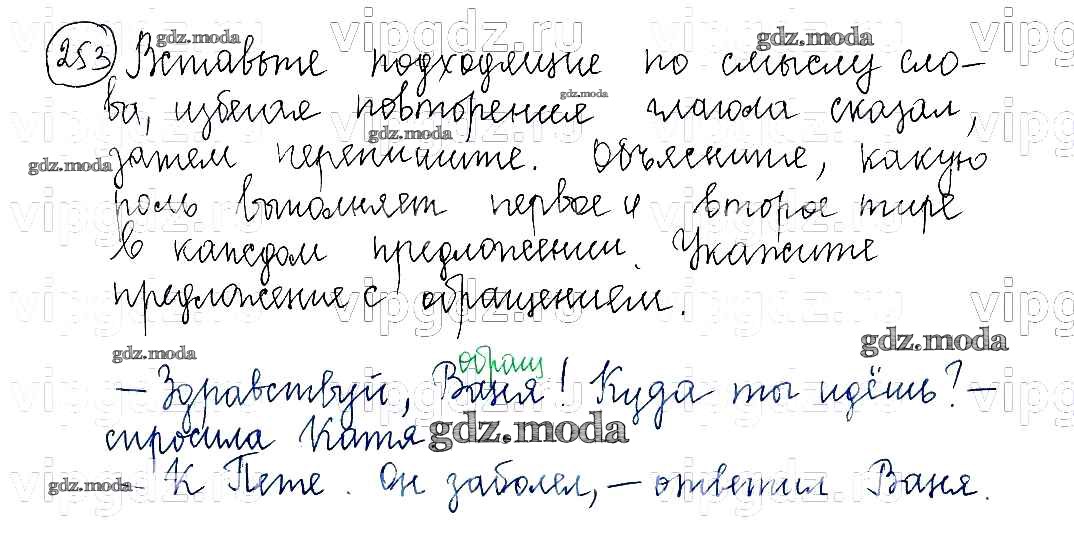 253 Вставьте подходящие по смыслу сло-
ва, избегая повторения глагола сказал,
затем перепишите. Объясните, какую
роль выполняет первое и второе тире
в каждом предложении. Укажите
предложение с обращением.
обращ
— Здравствуй, Ваня! Куда ты идёшь? —
спросила Катя
— К Пете. Он заболел, — ответил Ваня.
gdz.moda
vipgdz.ru